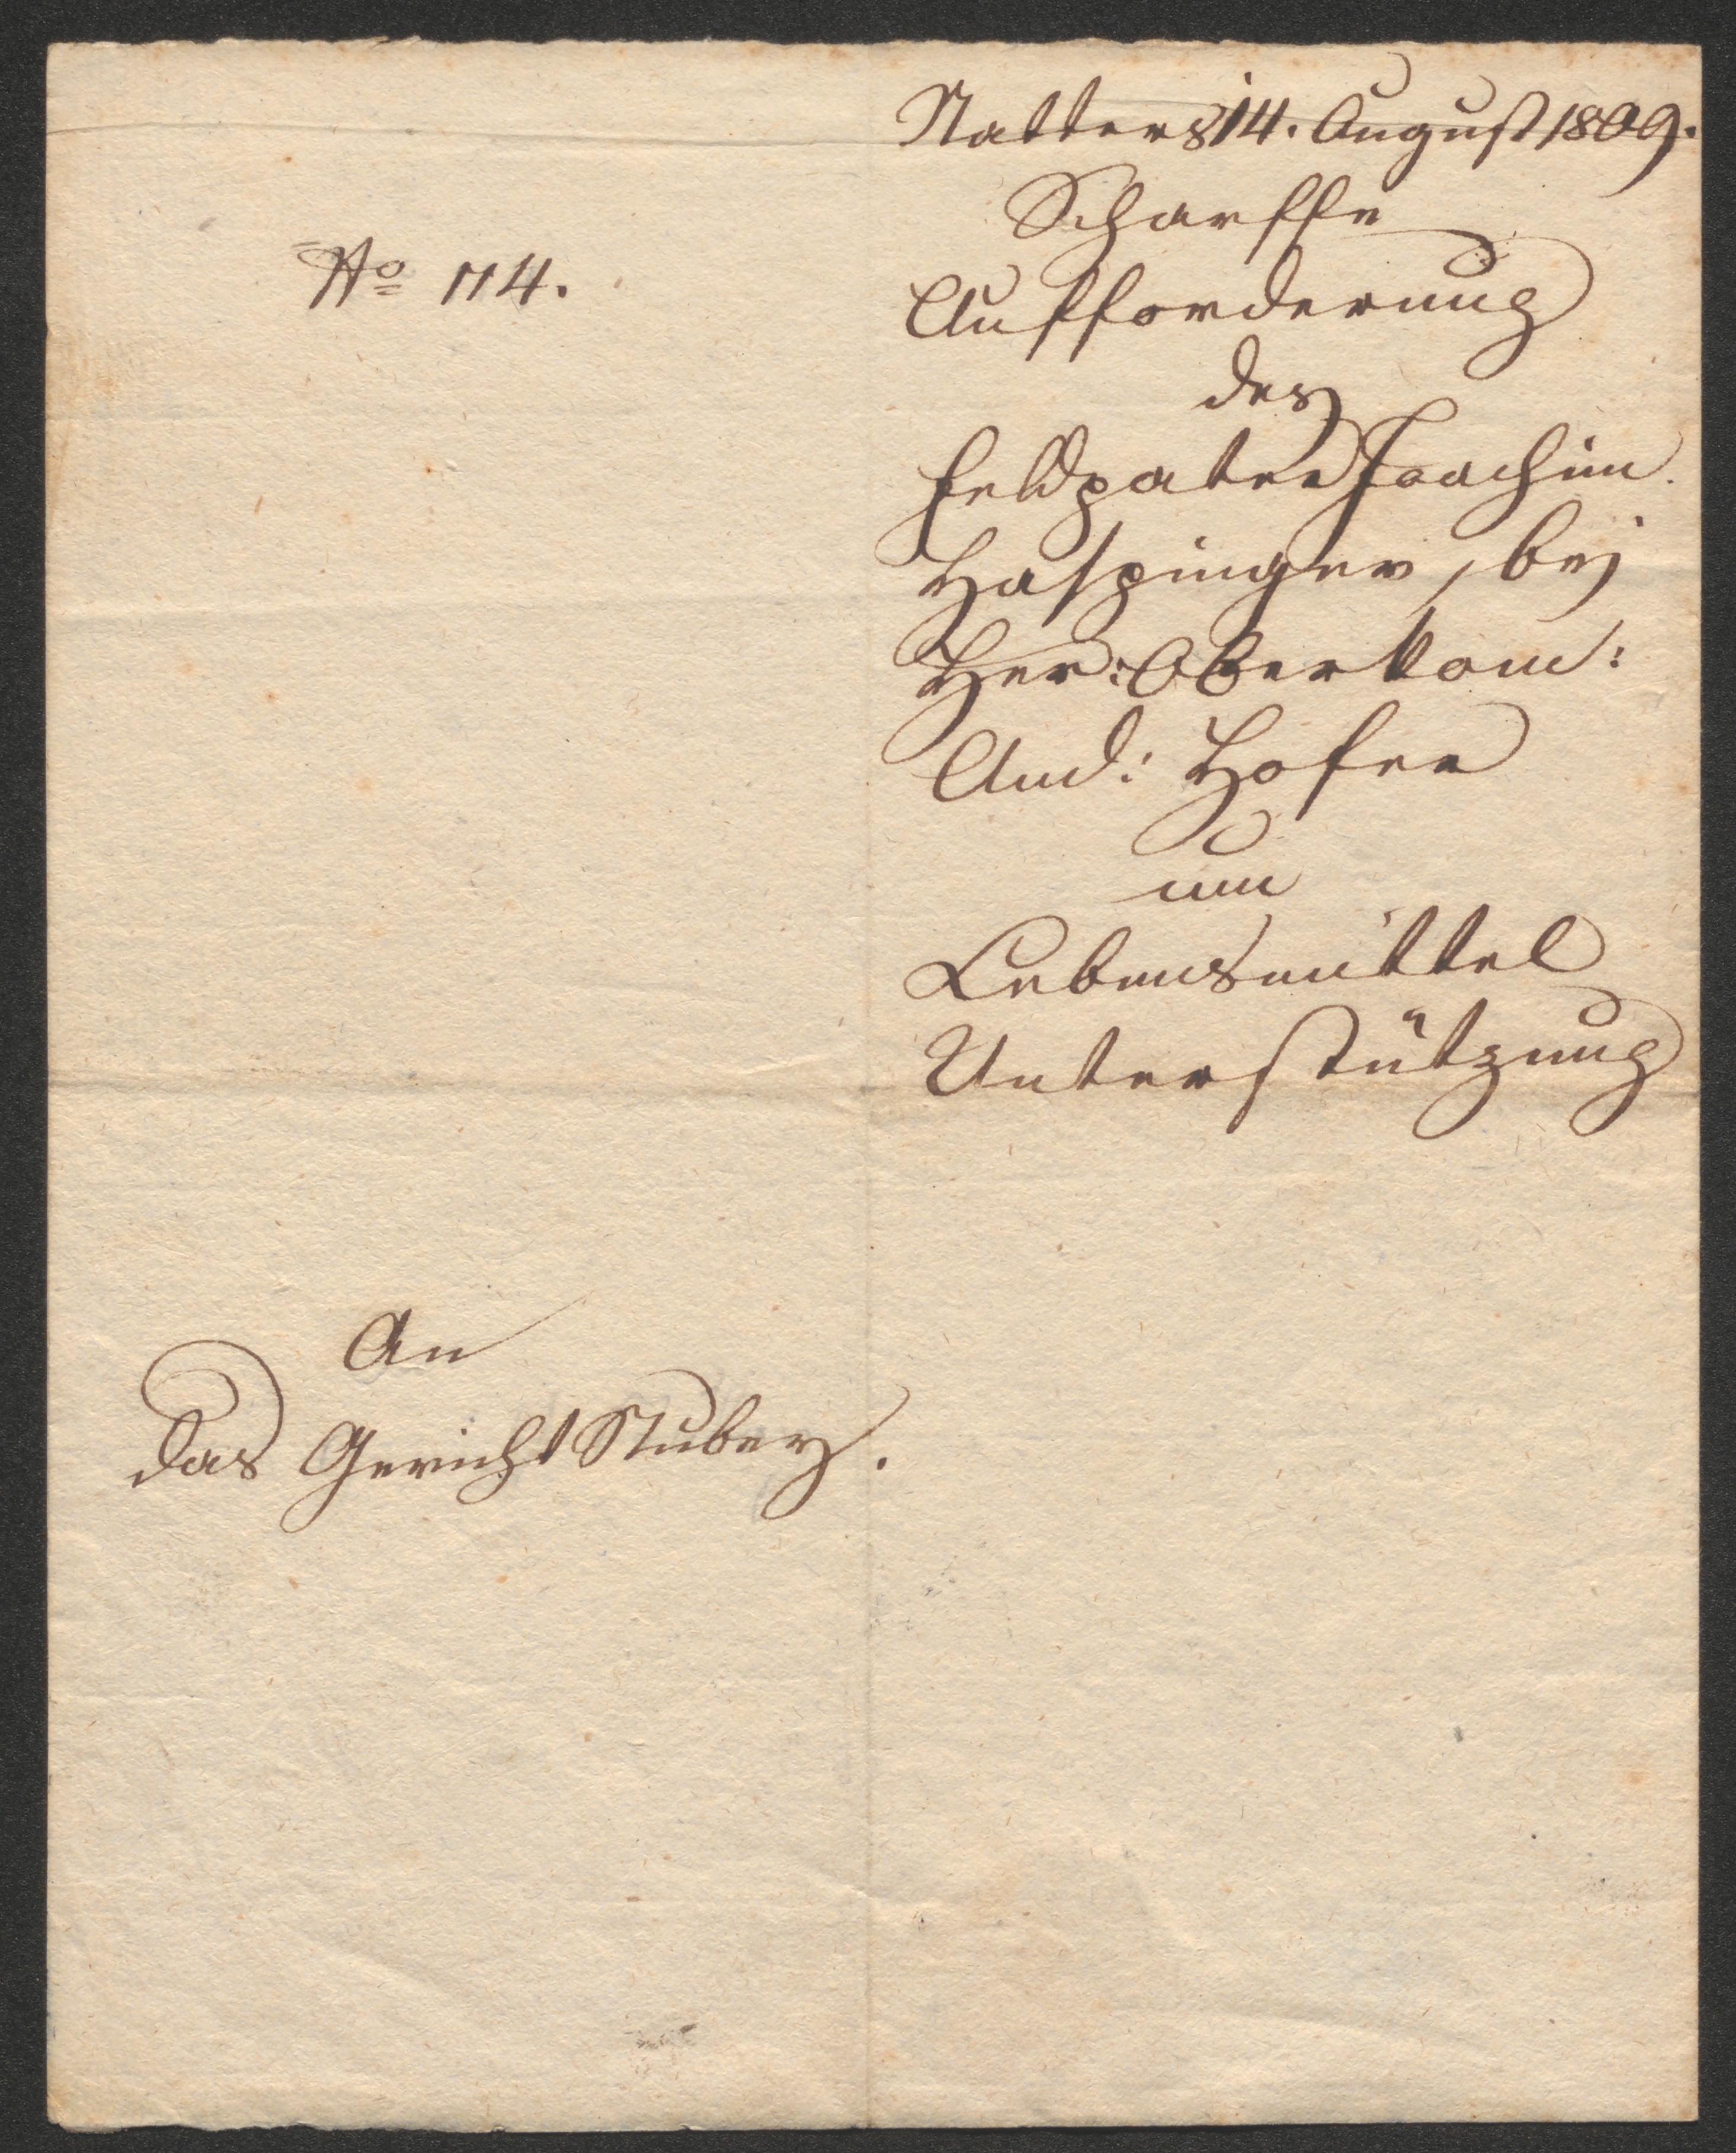 Natters 14. August 1809.
Scharffe
Aufforderung
des
Feldpater Joachim
Haspinger, bej
Her: Oberkom:
And: Hofer
um
Lebensmittel
Unterstützung
No 114.
An
das Gericht Stubey.